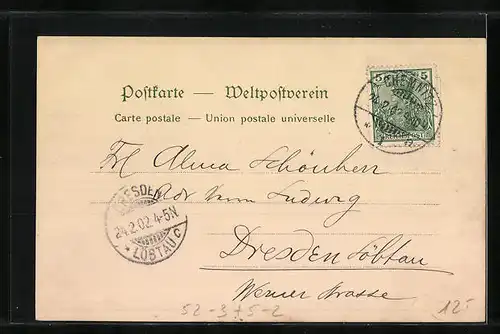 Postkarte — Weltpostverein
Carte postale — Union postale universelle
5 5
CHEMNITZ
Frl Alma Schönherr
Adr Ludwig
Dresden Löbtau
Werner strasse
DRESDEN
24.2.02.4-5N.
* LÖBTAU C
52-375-2
12.-